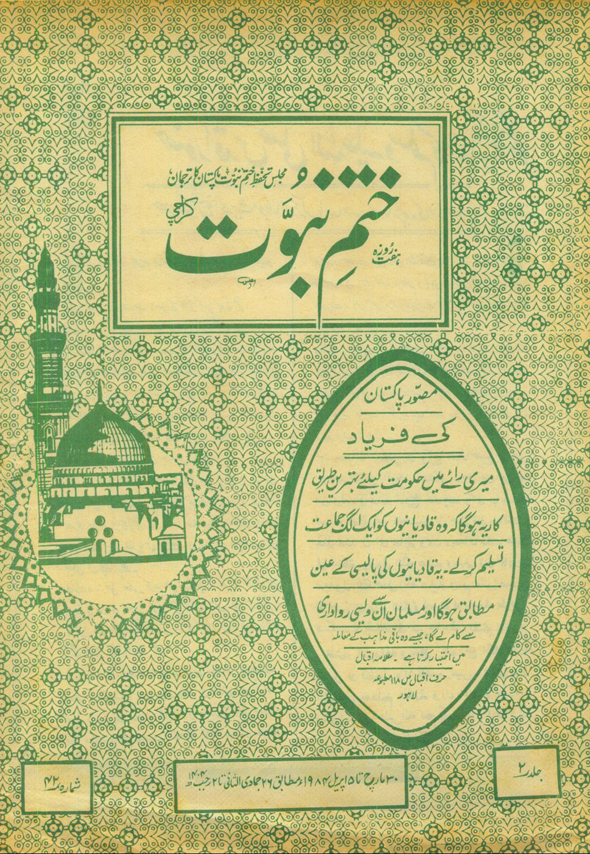 مجلس تحفظ ختم نبوت پاکستان کا ترجمان
ہفت روزہ
ختمِ نبوَّت
کراچی
مصوّر پاکستان
کی فریاد
میری رائے میں حکومت کیلئے بہترین طریق
کار یہ ہوگا کہ وہ قادیانیوں کو ایک الگ جماعت
تسلیم کرلے۔ یہ قادیانیوں کی پالیسی کے عین
مطابق ہوگا اور مسلمان ان سے ویسی رواداری
سے کام لے گا، جیسے وہ باقی مذاہب کے معاملہ
میں اختیار کرتا ہے۔ علامہ اقبال
حرف اقبال ص ۱۱۸ مطبوعہ
لاہور
جلد ۲
۳۰ مارچ تا ۵ اپریل ۱۹۸۴ء مطابق ۲۶ جمادی الثانی تا ۲ رجب ۱۴۰۴ھ
شمارہ ۴۲